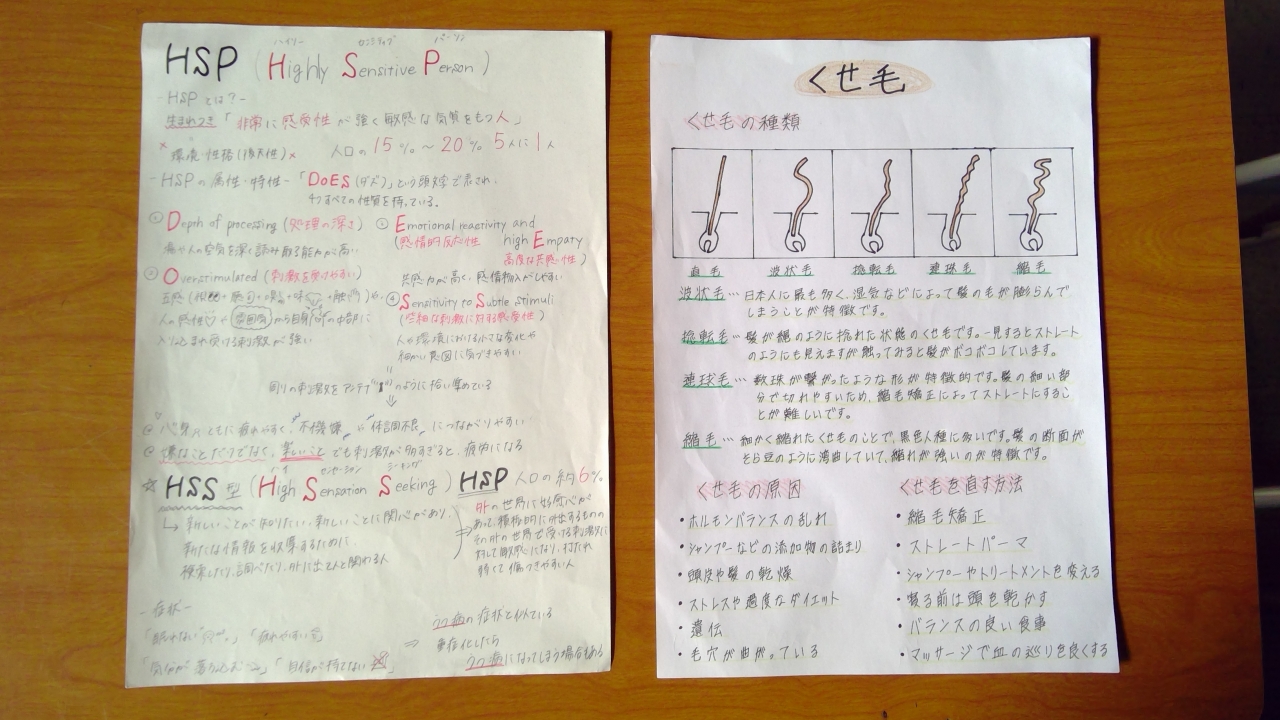 ハイリー センシティブ パーソン
HSP (Highly Sensitive Person)
-HSPとは?-
生まれつき「非常に感受性が強く敏感な気質をもつ人」
×環境・性格(後天性)× 人口の15%～20% 5人に1人
-HSPの属性・特性-「DOES(ダズ)」という頭文字で表され、
4つすべての性質を持っている。
① Depth of processing (処理の深さ)
場や人の空気を深く読み取る能力が高い
② Overstimulated (刺激を受けやすい)
人の感性や雰囲気から自身の内部に
入り込まれ受ける刺激が強い
③ Emotional reactivity and
(感情的反応性 high Empaty
高度な共感性)
共感力が高く、感情移入がしやすい
④ Sensitivity to Subtle stimuli
(些細な刺激に対する感受性)
人や環境における小さな変化や
細かい意図に気づきやすい
周りの刺激をアンテナのように拾い集めている
心身ともに疲れやすく"不機嫌"に"体調不良"につながりやすい
嫌なことだけでなく、楽しいことでも刺激が多すぎると、疲労になる
ハイ センセーション シーキング
☆HSS型 (High Sensation Seeking) HSP 人口の約6%
↳新しいことが知りたい、新しいことに関心があり、
新たな情報を収集するために、
検索したり、調べたり、外に出て人と関わる人
外の世界に好奇心が
あって、積極的に外出するものの
その外の世界で受ける刺激に
対して敏感になり、打たれ
弱くて傷つきやすい人
-症状-
「眠れない」「疲れやすい」
「気分が落ち込む」「自信が持てない」
⇒ うつ病の症状と似ている
重症化したら
うつ病になってしまう場合もある
くせ毛
くせ毛の種類
直毛 波状毛 捻転毛 連球毛 縮毛
波状毛…日本人に最も多く、湿気などによって髪の毛が膨らんで
しまうことが特徴です。
捻転毛…髪が縄のように捻れた状態のくせ毛です。一見するとストレート
のようにも見えますが触ってみると髪がボコボコしています。
連球毛…数珠が繋がったような形が特徴的です。髪の細い部
分で切れやすいため、縮毛矯正によってストレートにするこ
とが難しいです。
縮毛…細かく縮れたくせ毛のことで、黒色人種に多いです。髪の断面が
そら豆のように湾曲していて、縮れが強いのが特徴です。
くせ毛の原因
・ホルモンバランスの乱れ
・シャンプーなどの添加物の詰まり
・頭皮や髪の乾燥
・ストレスや過度なダイエット
・遺伝
・毛穴が曲がっている
くせ毛を直す方法
・縮毛矯正
・ストレートパーマ
・シャンプーやトリートメントを変える
・寝る前は頭を乾かす
・バランスの良い食事
・マッサージで血の巡りを良くする